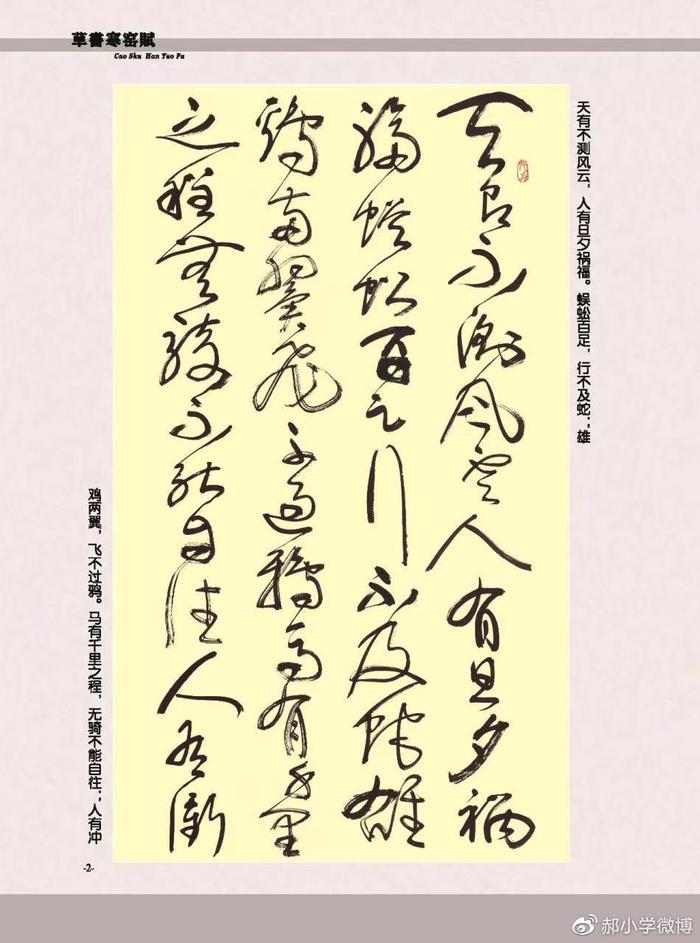 草書寒窑賦
Cao Shu Han Yao Fu
天有不测风云，人有旦夕祸福。蜈蚣百足，行不及蛇；雄
天有不測風雲人有旦夕禍
福蜈蚣百足行不及蛇雄
鷄兩翼飛不過鴉馬有千里
之程無騎不能自往人有衝
鸡两翼，飞不过鸦。马有千里之程，无骑不能自往；人有冲
-2-
郝小学微博